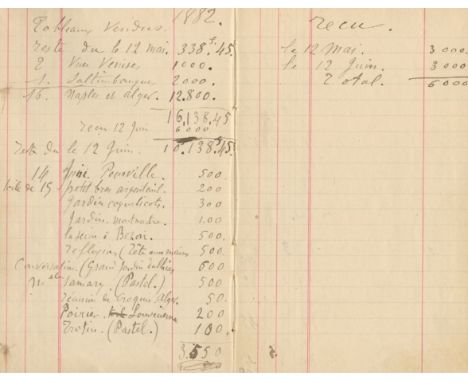 1882.
Tableaux Vendus.
reste du le 12 mai. 338f.45.
2 Vues Venise 1000.
1. Saltimbanque 2000.
16. Naples et alger. 12.800.
16,138,45
recu 12 Juin 6.000
reste du le 12 Juin. 10.138f45.
14 Pourville. 500.
toile de 15 petit bras argenteuil. 200
Jardin coquelicots. 300
Jardin montmartre. 100
la seine à Bezon. 500.
reflexion (Tête aux mains 500.
Conversation (Grand Jardin 600
Samary (Pastel.) 500
50.
Poirier. Louveciennes 200
Trotin. (Pastel.) 100.
3550
recu.
le 12 Mai. 3000.
le 12 Juin. 3000.
Total. 6000